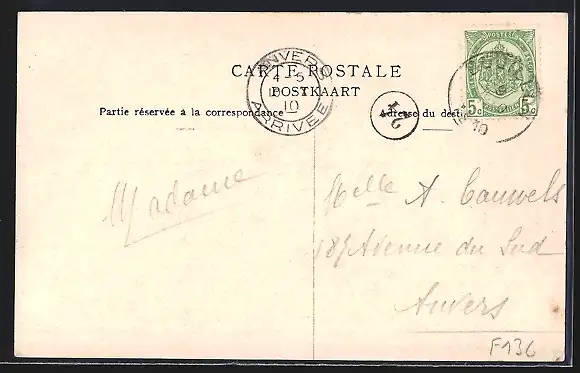 CARTE POSTALE
POSTKAART
Partie réservée à la correspondance
Adresse du desti
ANVERS
4-5
10
ARRIVÉE
POSTES
5c 5c
10
Madame
Melle A. Cauwels
189 Avenue du Sud
Anvers
F136